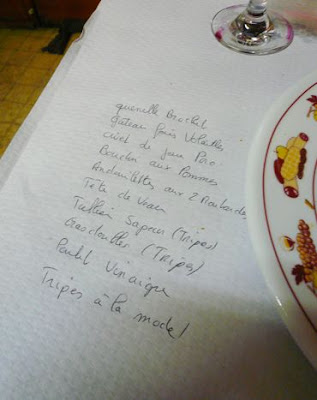 quenelle Brochet
Gateau foies Volailles
civet de joue Porc
Boudin aux Pommes
Andouillettes aux 2 Moutardes
Tête de Veau
Tablier Sapeur (Tripes)
(Tripes)
Poulet Vinaigre
Tripes à la mode